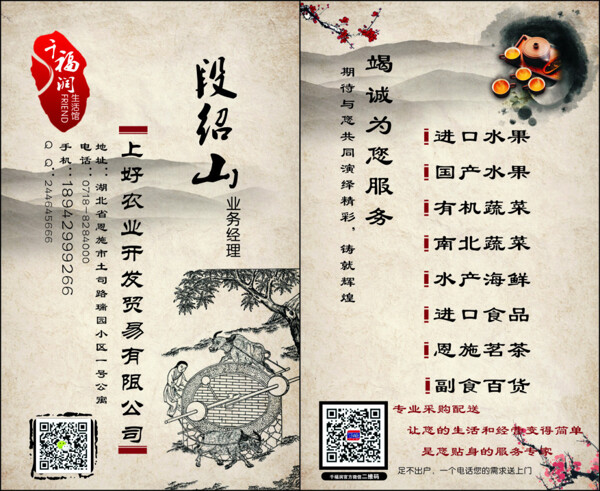 千福润
生活馆
FRIEND
段绍山
业务经理
上好农业开发贸易有限公司
地址：湖北省恩施市土司路瑞园小区一号公寓
电话：0718-8284000
手机：18942999266
Q Q：244645666
竭诚为您服务
期待与您共同演绎精彩，铸就辉煌
进口水果
国产水果
有机蔬菜
南北蔬菜
水产海鲜
进口食品
恩施茗茶
副食百货
专业采购配送
让您的生活和经营变得简单
是您贴身的服务专家
足不出户，一个电话您的需求送上门
千福润官方微信二维码